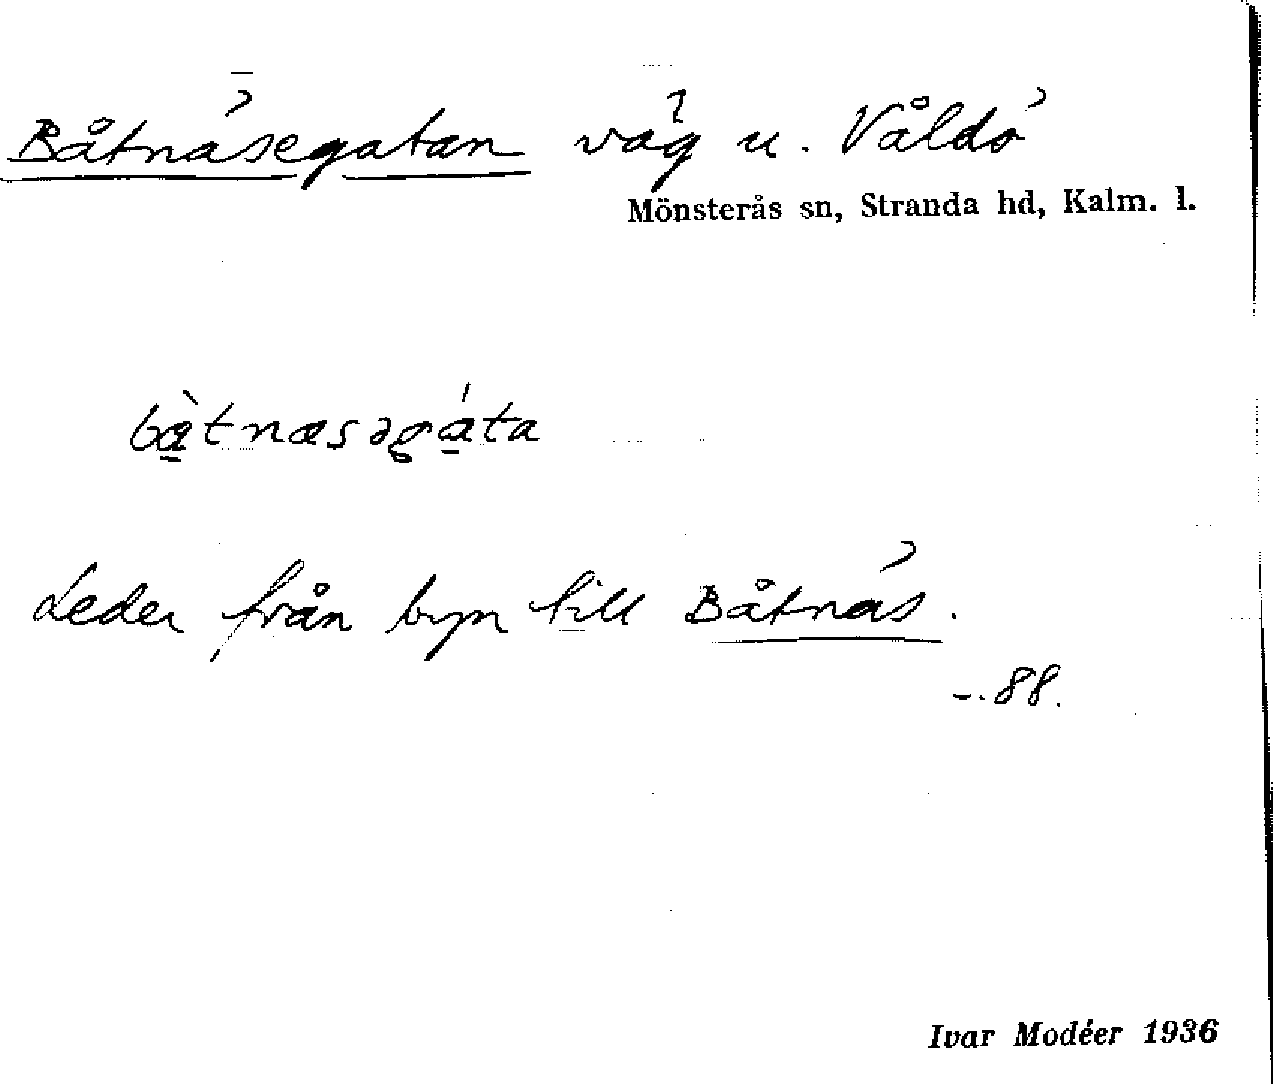 Båtnäsegatan väg u. Våldö
Mönsterås sn, Stranda hd, Kalm. l.
bàtnæsəgáta
Leder från byn till Båtnäs.
–. 88.
Ivar Modéer 1936